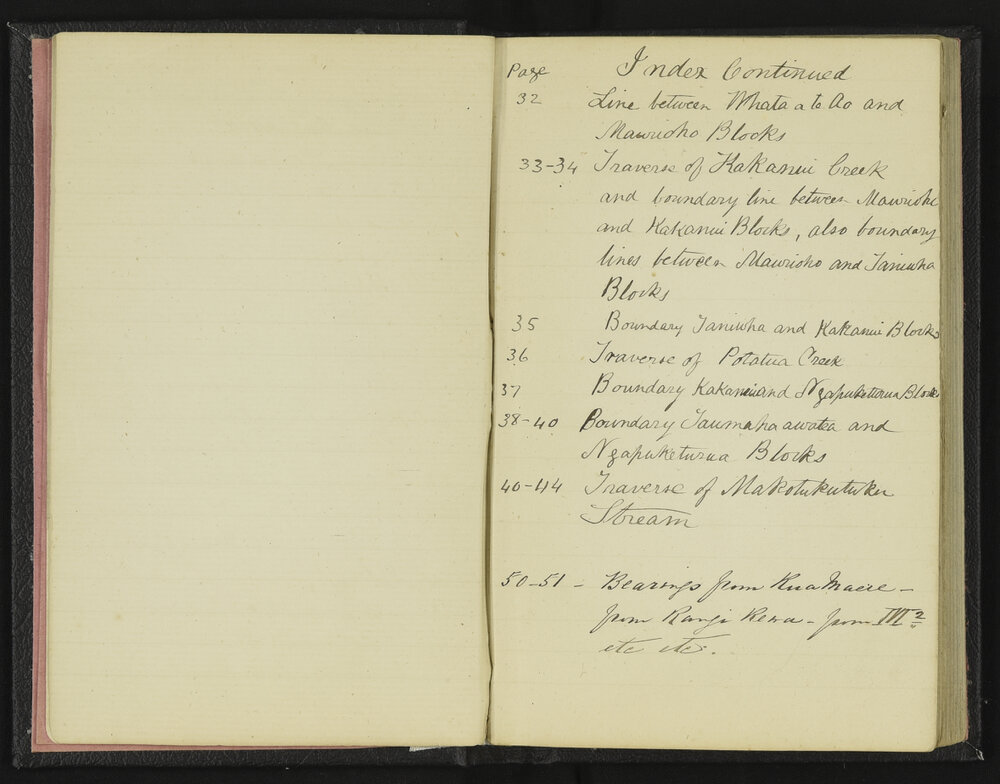 Page Index Continued
32 Line between Whata a te Ao and
Mawrioho Blocks
33-34 Traverse of Kakanui Creek
and boundary line between Mawrioho
and Kakanui Blocks, also boundary
lines between Mawrioho and Taniwha
Blocks
35 Boundary Taniwha and Kakanui Blocks
36 Traverse of Potatua Creek
37 Boundary Kakanui and Ngapuketurua Blocks
38-40 Boundary Taumahaawatea and
Ngapuketurua Blocks
40-44 Traverse of Makotukutuku
Stream
50-51 - Bearings from Rua Maere -
from Rangi Rewa - from III 2
etc etc.